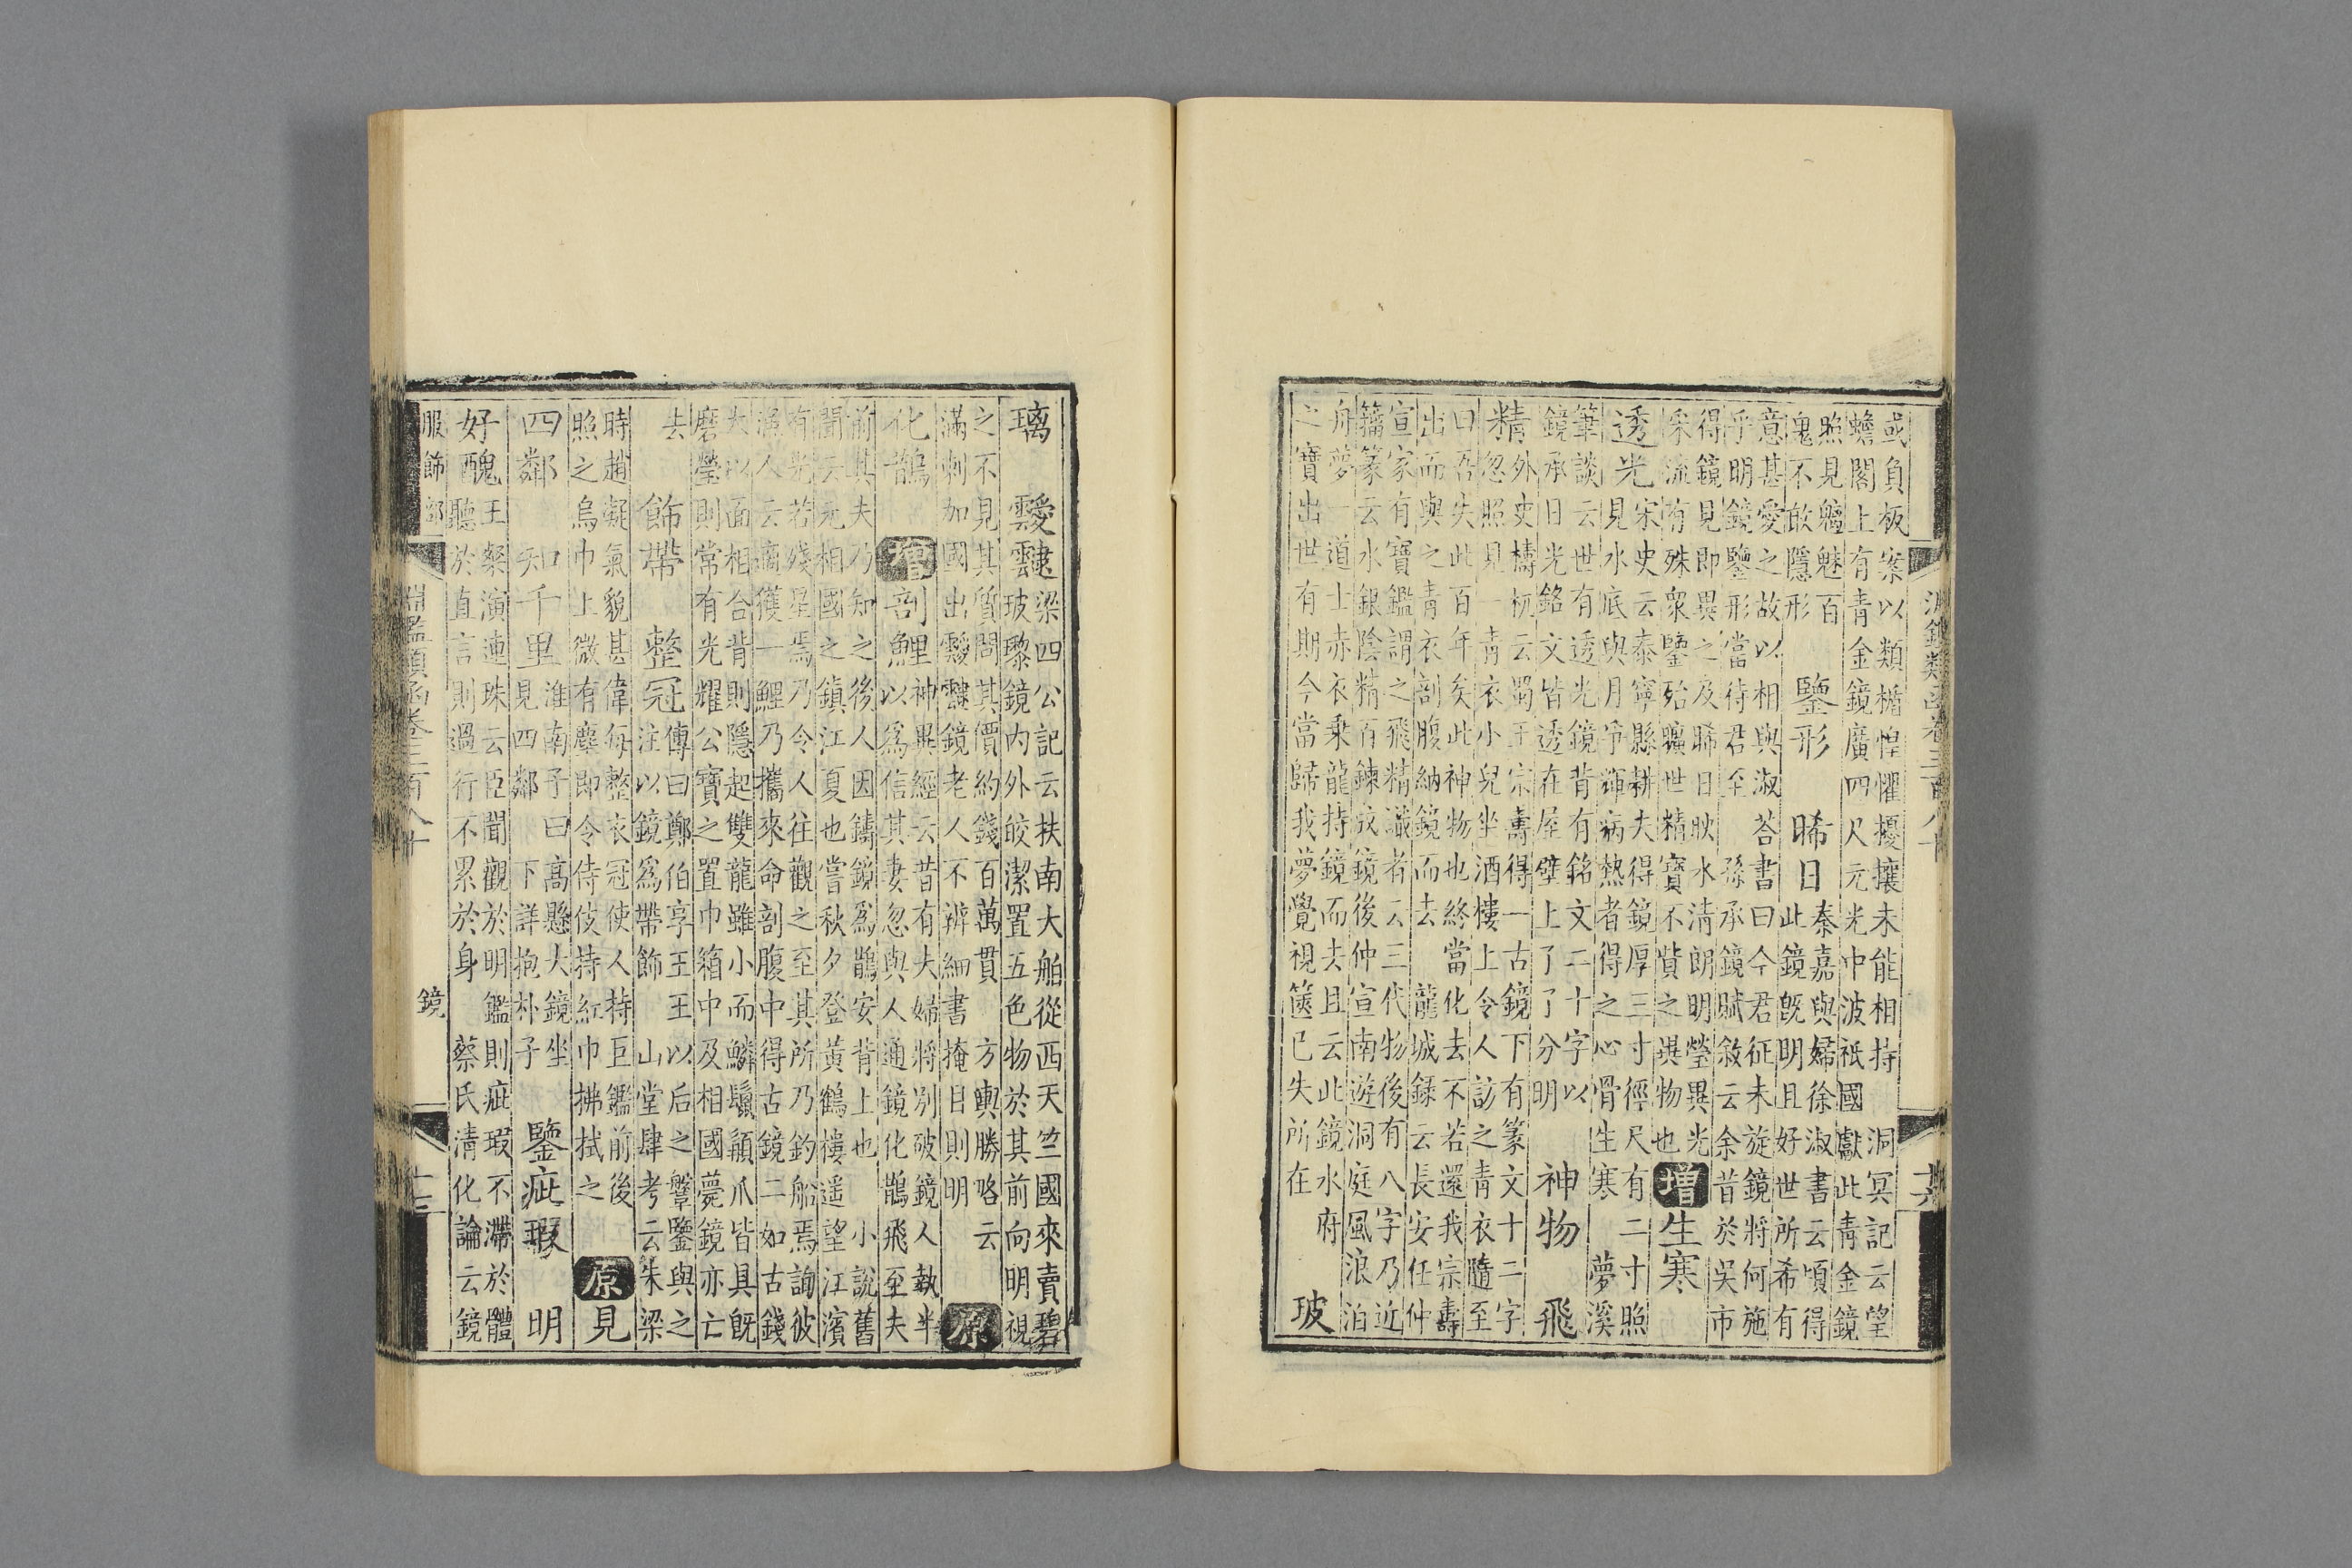 淵鑑類函卷三百八十
或負板案以類楯惶懼擾攘未能相持　洞冥記云望
蟾閣上有青金鏡廣四尺元光中波祇國獻此青金鏡
照見魑魅百
鬼不敢隱形
鑒形　晞日
秦嘉與婦徐淑書云頃得
此鏡既明且好世所希有
意甚愛之故以相與淑答書曰今君征未旋鏡將何施
乎明鏡鑒形當待君至　孫承鏡賦敘云余昔於吳市
得鏡見即異之及晞日耿水清朗明瑩異光
采流有殊衆鑒殆曠世精寶不貲之異物也
增生寒
透光
宋史云泰寧縣耕夫得鏡厚三寸徑尺有二寸照
見水底與月爭輝病熱者得之心骨生寒　夢溪
筆談云世有透光鏡背有銘文二十字以
鏡承日光銘文皆透在屋壁上了了分明
神物　飛
精
外史檮杌云蜀王宗壽得一古鏡下有篆文十二字
忽照見一青衣小兒坐酒樓上令人訪之青衣隨至
曰吾失此百年矣此神物也終當化去不若還我宗壽
出而與之青衣剖腹納鏡而去　龍城錄云長安任仲
宣家有寶鑑謂之飛精識者云三代物後有八字乃近
籀篆云水銀陰精百鍊成鏡後仲宣南遊洞庭風浪泊
舟夢一道士赤衣乘龍持鏡而去且云此鏡水府
之寶出世有期今當歸我夢覺視篋已失所在
玻
璃　靉靆
梁四公記云扶南大舶從西天竺國來賣碧
玻瓈鏡內外皎潔置五色物於其前向明視
之不見其質問其價約錢百萬貫　方輿勝略云
滿剌加國出靉靆鏡老人不辨細書掩目則明
原
化鵲　增剖鯉
神異經云昔有夫婦將別破鏡人執半
以爲信其妻忽與人通鏡化鵲飛至夫
前其夫乃知之後人因鑄鏡爲鵲安背上也　小說舊
聞云元相國之鎮江夏也嘗秋夕登黃鶴樓遥望江濱
有光若殘星焉乃令人往觀之至其所乃釣船焉詢彼
漁人云適獲一鯉乃攜來命剖腹中得古鏡二如古錢
大以面相合背則隱起雙龍雖小而鱗鬛顈爪皆具既
磨瑩則常有光耀公寶之置巾箱中及相國薨鏡亦亡
去
飾帶　整冠
傅曰鄭伯享王王以后之鞶鑒與之
注以鏡爲帶飾　山堂肆考云朱梁
時趙凝氣貌甚偉每整衣冠使人持巨鑑前後
照之烏巾上微有塵即令侍伎持紅巾拂拭之
原見
四鄰　知千里
淮南子曰高懸大鏡坐
見四鄰　下詳抱朴子
鑒疵瑕　明
好醜
王粲演連珠云臣聞觀於明鑑則疵瑕不滯於體
聽於直言則過行不累於身　蔡氏清化論云鏡
服飾部　鏡
淵鑑類函卷三百八十